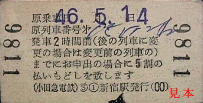 46.5.14
原乗車
原列車番号
発車2時間前(後の列車に変
更の場合は変更前の列車の)
までにお申出の場合に5割の
払いもどしを致します
(小田急電式) ① 新宿駅発行(00)
9811
9811
見本